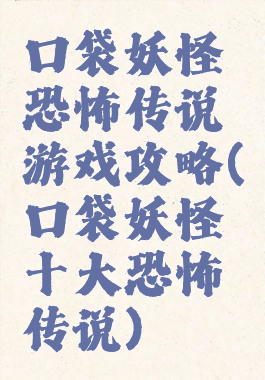 口袋妖怪
恐怖传说
游戏攻略(
口袋妖怪
十大恐怖
传说)